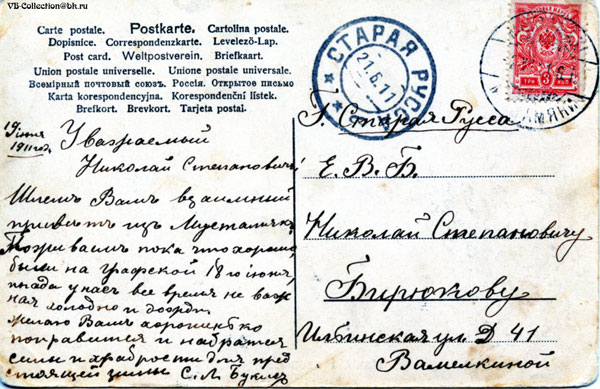 VB-Collection@bk.ru
Carte postale. Postkarte. Cartolina postale.
Dopisnice. Correspondenzkarte. Levelező-Lap.
Post card. Weltpostverein. Briefkaart.
Union postale universelle. Unione postale universale.
Всемірный почтовый союзъ. Россія. Открытое письмо
Karta korespondencyjna. Korespondenční lístek.
Brefkort. Brevkort. Tarjeta postal.
СТАРАЯ РУССА
21.6.11
19 іюня
1911 год.
Уважаемый
Николай Степановичъ
Шлемъ Вамъ взаимный
приветъ изъ
Поживаемъ пока что хорошо,
были на Графской 18го іюня,
погода у насъ все время не важ
ная холодно и дожди
желаю Вамъ хорошенько
поправится и набратся
силы и храбрости для пред
стоящей зимы С. Л.
Г. Старая Русса
Е. В. Б.
Николай Степановичу
Бирюкову
Ильинская ул. Д 41
Вамелкиной